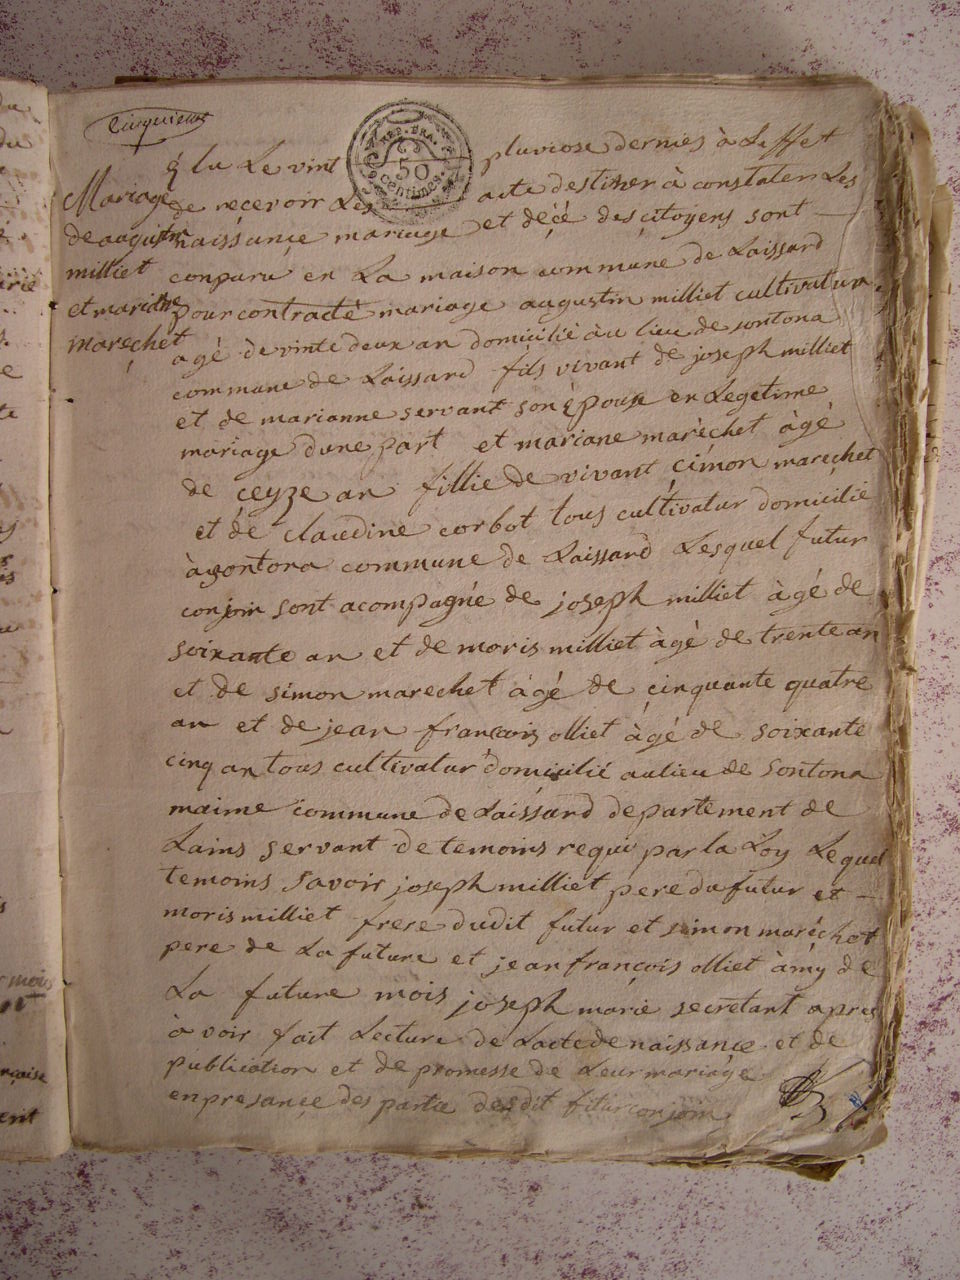 Cinquieme
REP. FRA.
50
centimes
Mariage
de augustin
milliet
et mariane
maréchet
élu le vint pluviose dernies à Leffet
de recevoir Les acte destiner à constater Les
naissance mariage et décé des citoyens sont
conparu en La maison commune de Laissard
pour contracté mariage augustin milliet cultivatur
agé de vinte deux an domicilié àu lieu de sontona
commune de Laissard fils vivant de joseph milliet
et de marianne servant son épouse en Legetime
mariage dune part et mariane maréchet àgé
de ceyze an fillie de vivant cimon maréchet
et de claudine corbot tous cultivatur domicilié
à sontona commune de Laissard Lesquel futur
conjoin sont acompagné de joseph milliet àgé de
soixante an et de moris milliet àgé de trente an
et de simon marechet àgé de cinquante quatre
an et de jean françois olliet àgé de soixante
cinq an tous cultivatur domicilié aulieu de sontona
maime commune de Laissard departement de
Lains servant de temoins requi par la Loy Lequel
temoins savoir joseph milliet pere du futur et
moris milliet frere dudit futur et simon maréchet
pere de La future et jean françois olliet àmy de
La future mois joseph marie secretant apres
àvoir fait Lecture de Lacte de naissance et de
publication et de promesse de Leur mariage
en presance des partie desdit futur conjoin